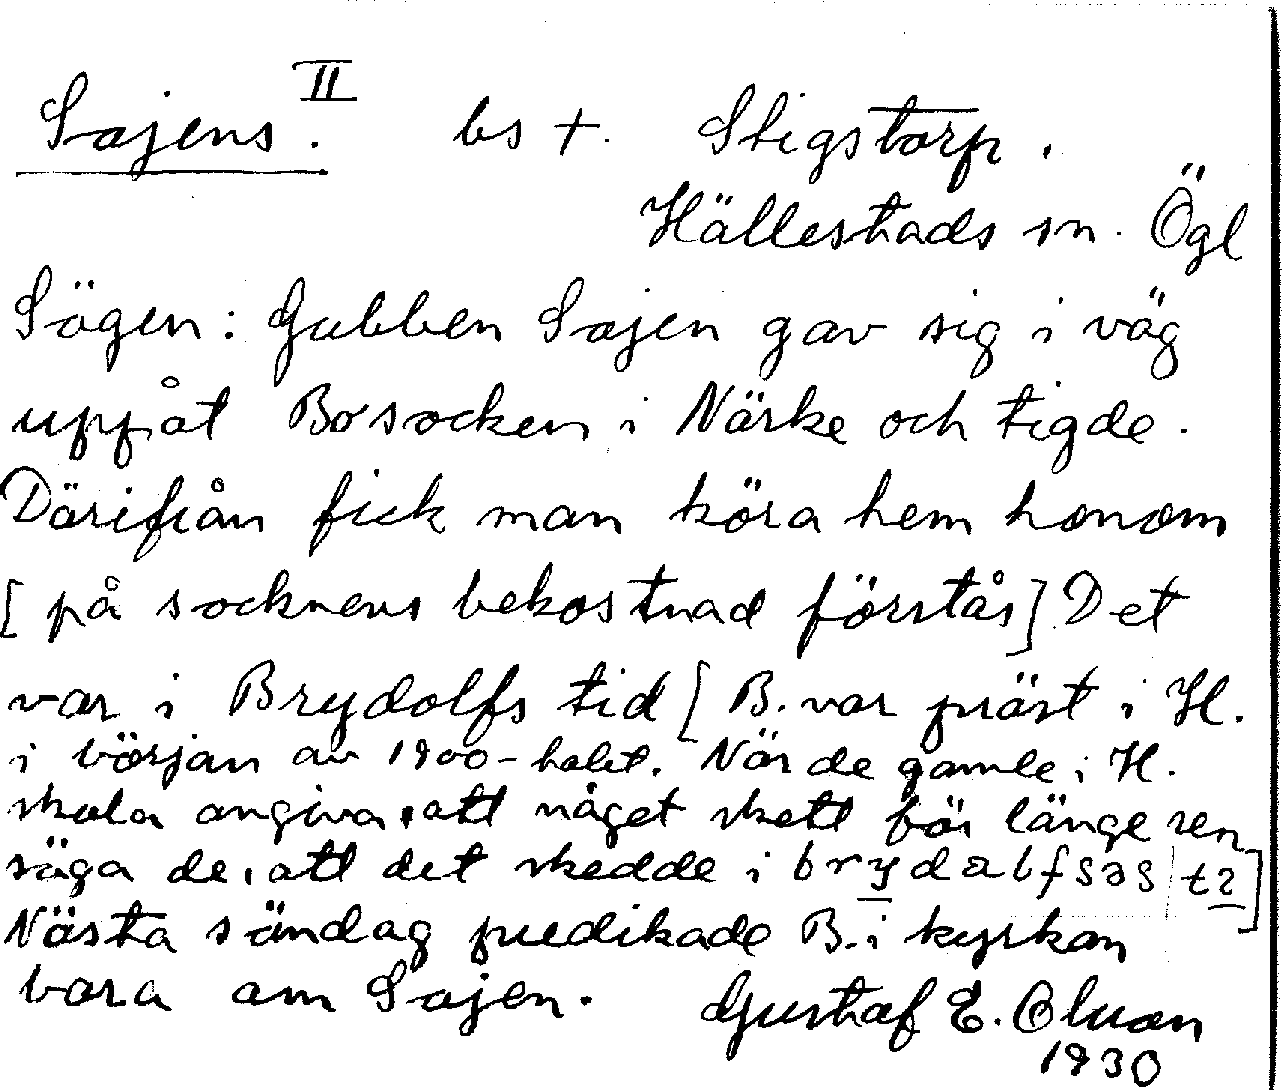 Sajens. II bs +. Stigstorp.
Hällestads sn. Ögl
Sägen: Gubben Sajen gav sig i väg
uppåt Bo socken i Närke och tigde.
Därifrån fick man köra hem honom
[på socknens bekostnad förstås] Det
var i Brydolfs tid [B. var präst i H.
i början av 1900-talet. När de gamle i H.
skola angiva, att något skett för länge sen
säga de, att det skedde i brydalfsas t
Nästa söndag predikade B. i kyrkan
bara om Sajen. Gustaf E. Olsson
1930